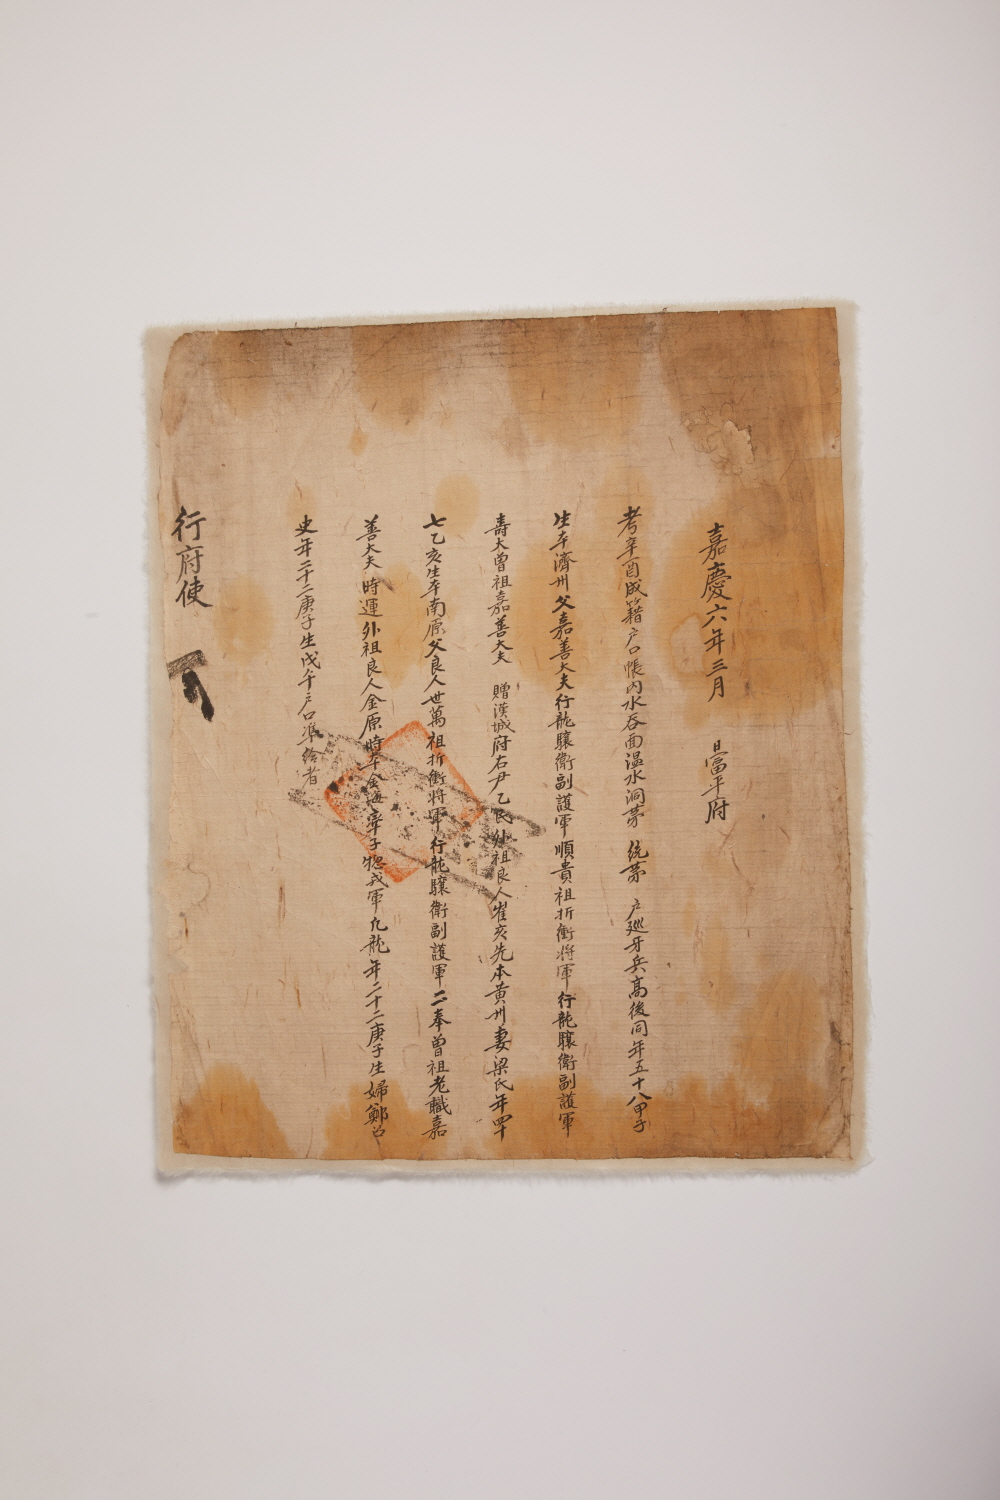 嘉慶六年三月 日富平府
考辛酉成籍戶口帳內水吞面温水洞苐 統苐 戶廵牙兵高後同年五十八甲子
生本濟州父嘉善大夫行龍驤衛副護軍順貴祖折衝將軍行龍驤衛副護軍
壽大曾祖嘉善大夫 贈漢城府右尹乙民外祖良人崔亥先本黃州妻梁氏年四十
七乙亥生本南原父良人世萬祖折衝將軍行龍驤衛副護軍二奉曾祖老職嘉
善大夫時運外祖良人金原時本金海率子惣戎軍九龍年二十二庚子生婦鄭召
史年二十二庚子生戊午戶口準給者
行府使